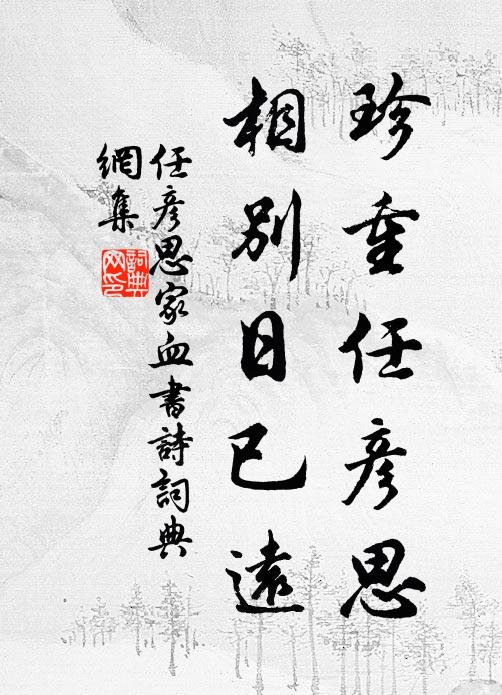 珍重任彦思
相別日已遠
任彦思家血書詩詞典
網集
詞典
网印